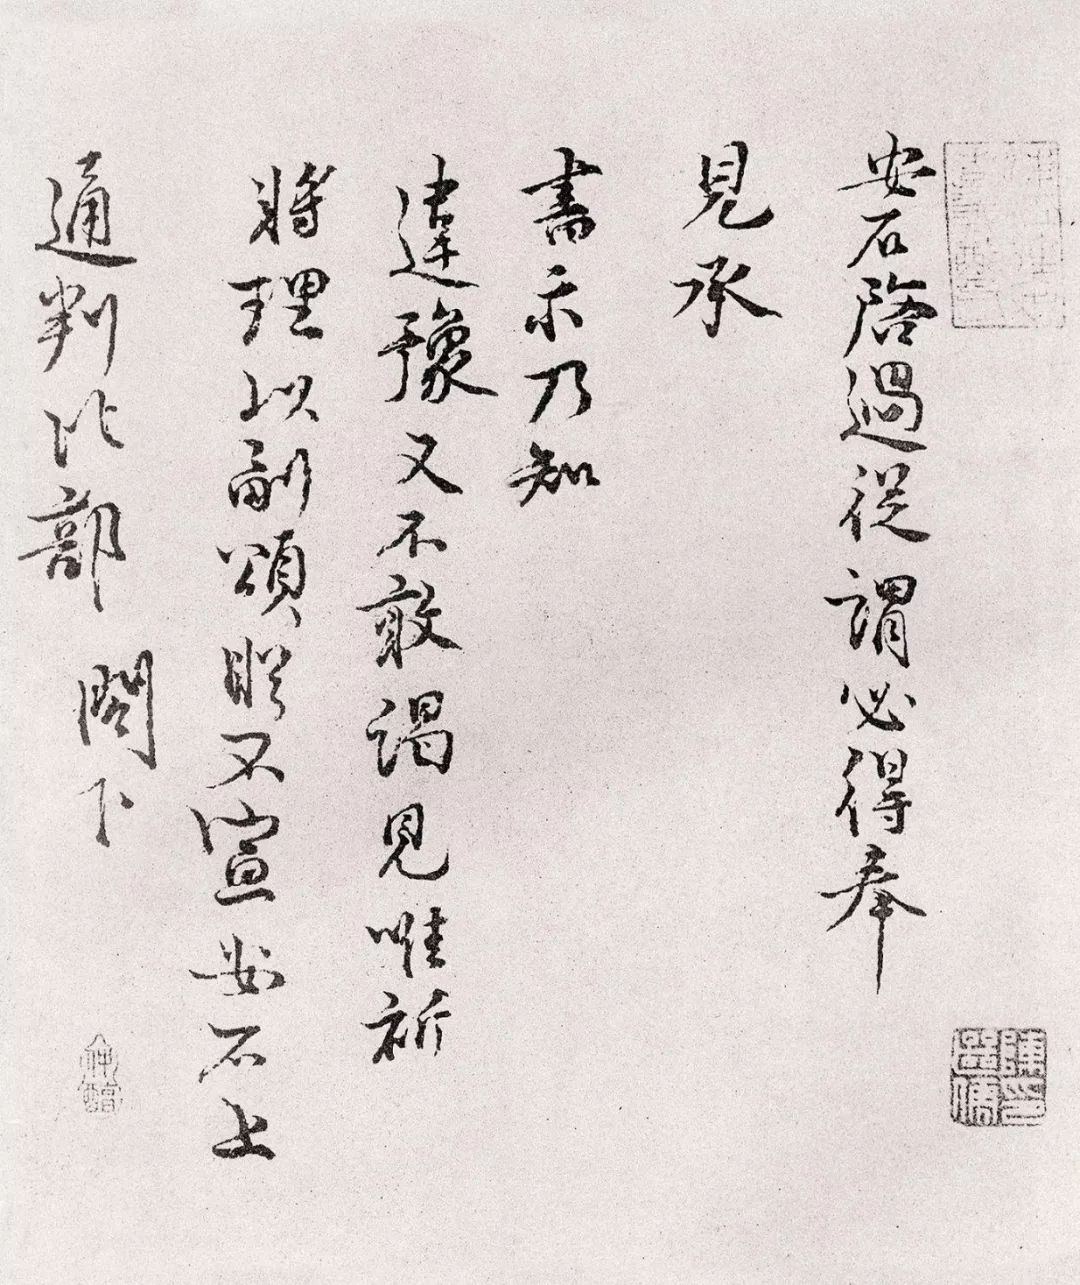 安石啓過從謂必得奉
見承
書示乃知
違豫又不敢謁見唯祈
將理以副頌不宣安石上
通判比部 閣下
陳印
繼儒
仲醇